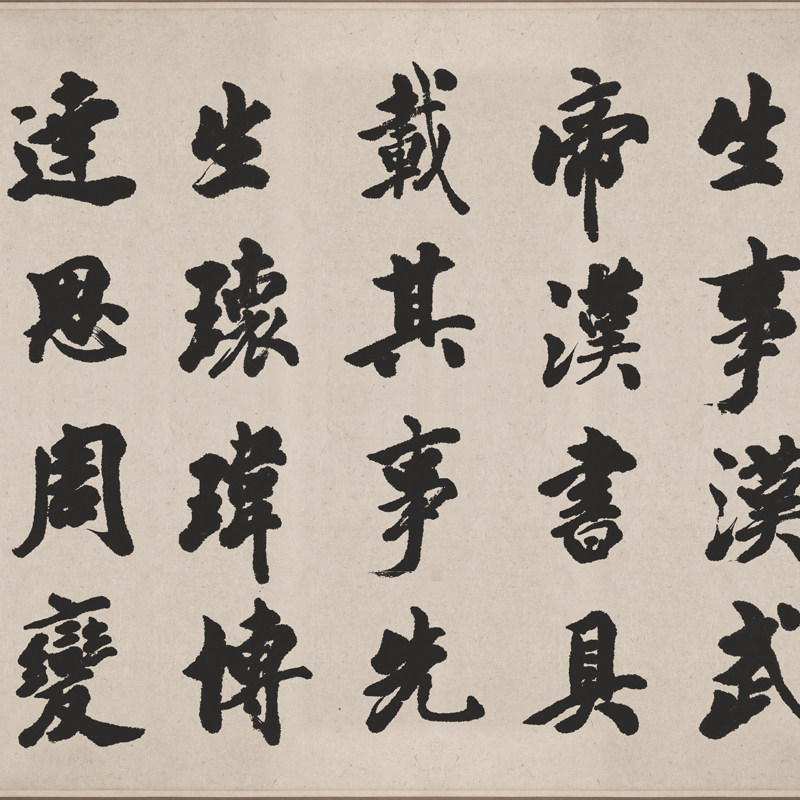 生事漢武
帝漢書具
載其事先
生瓌瑋博
達思周變